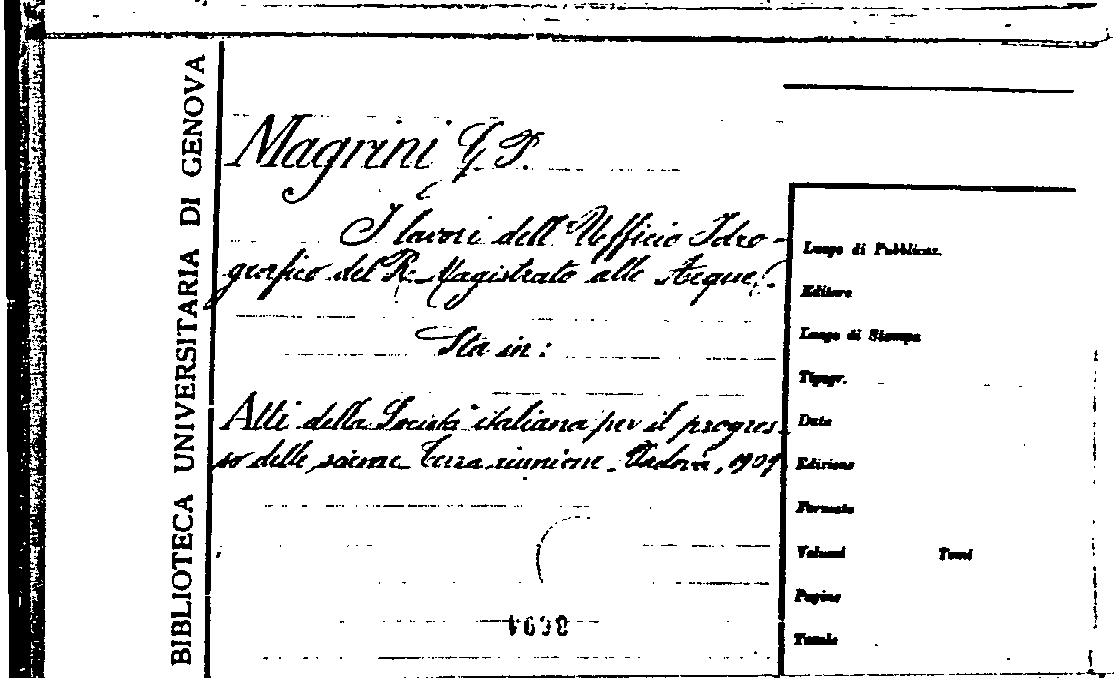 BIBLIOTECA UNIVERSITARIA DI GENOVA
Magrini G. P.
I lavori dell'Ufficio Idro-
grafico del R. Magistrato alle Acque.
Sta in:
Atti della Società italiana per il progres-
so delle scienze Terza riunione. Padova, 1909
Luogo di Pubblicaz.
Editore
Luogo di Stampa
Tipogr.
Data
Edizione
Formato
Volumi Tomi
Pagine
Tavole